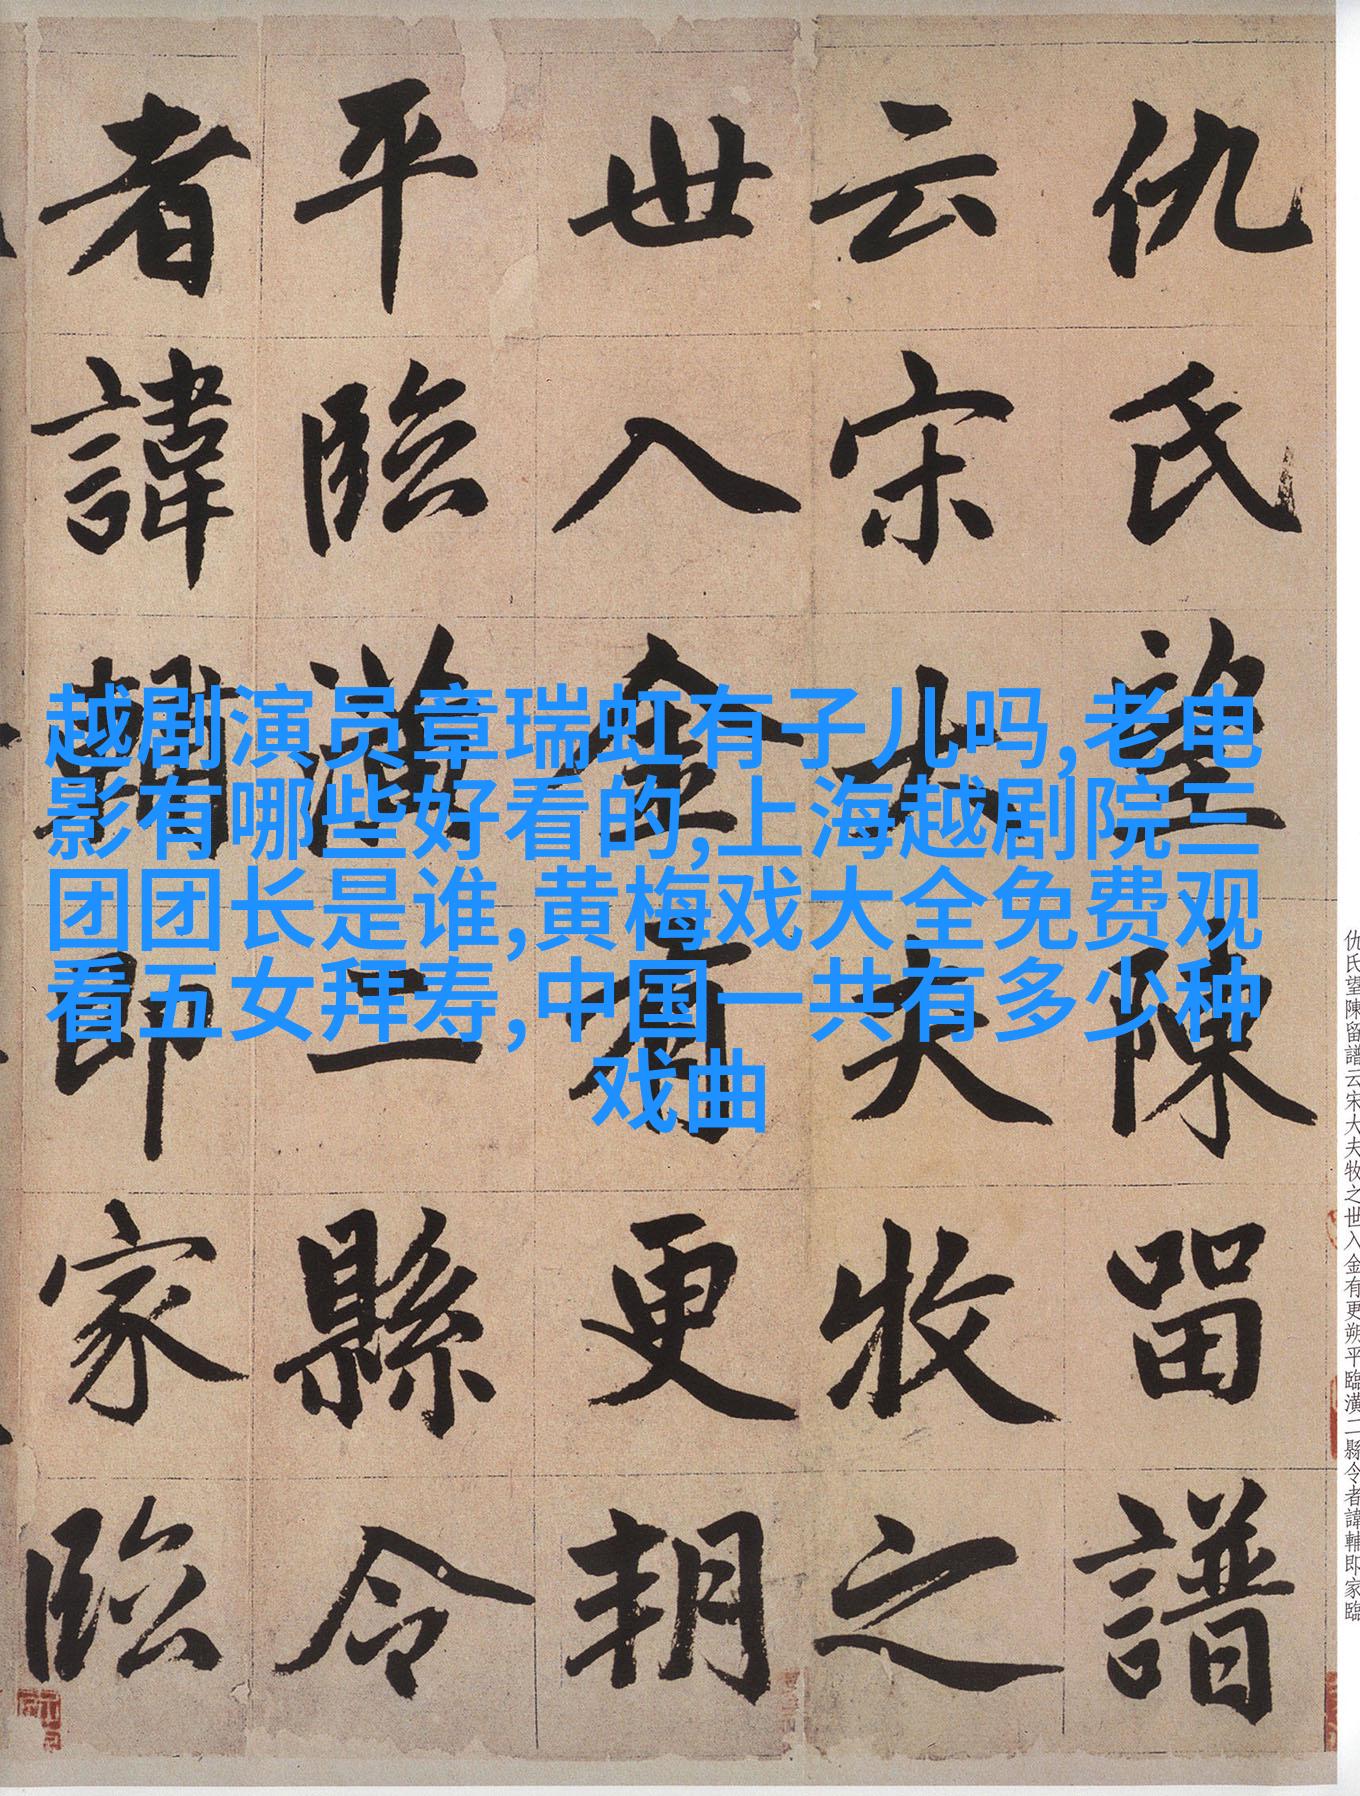 仇氏望陳留譜
云宋大夫牧之
世入金有更朔
平臨潢二縣令
者諱輔即家臨
越剧演员章瑞虹有子儿吗,老电
影有哪些好看的,上海越剧院三
团团长是谁,黄梅戏大全免费观
看五女拜寿,中国一共有多少种
戏曲
仇氏望陳留譜云宋大夫牧之世入金有更朔平臨潢二縣令者諱輔即家臨